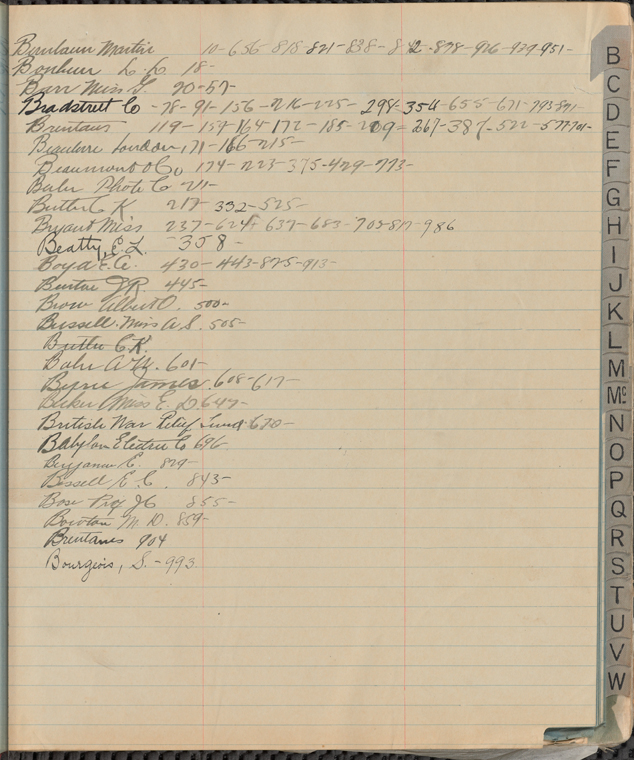 Martin 10-656-818-821-838-842-878-926-939-951-
Bonheur L. L. 18-
Barr Miss G. 20-57-
Bradstreet Co -78-91-156-216-225-298-354-655-671-793-871-
Brentanos 119-157-164-172-185-209-267-387-522-577-701-
London, 171-166-215-
Beaumont & Co 174-223-375-429-773-
Photo Co 211-
Butler C K 217-332-525-
Bryant Miss 237-624-637-683-705-817-986
Beatty, E. L. -358-
Boyd E. A. 430-443-875-913-
J R. 445-
Albert O. 500-
Bussell Miss A. S. 505-
Butler C. K.
601-
Byrne James 608-617-
Miss E. D. 647-
British War Relief Fund 670-
Babylon Electric Co 696-
Benjamin E. 829-
Bissell E. C. 843-
Bose 855-
M. D. 859-
Brentanos 904
Bourgeois, S. -993.
B
C
D
E
F
G
H
I
J
K
L
M
Mc
N
O
P
Q
R
S
T
U
V
W